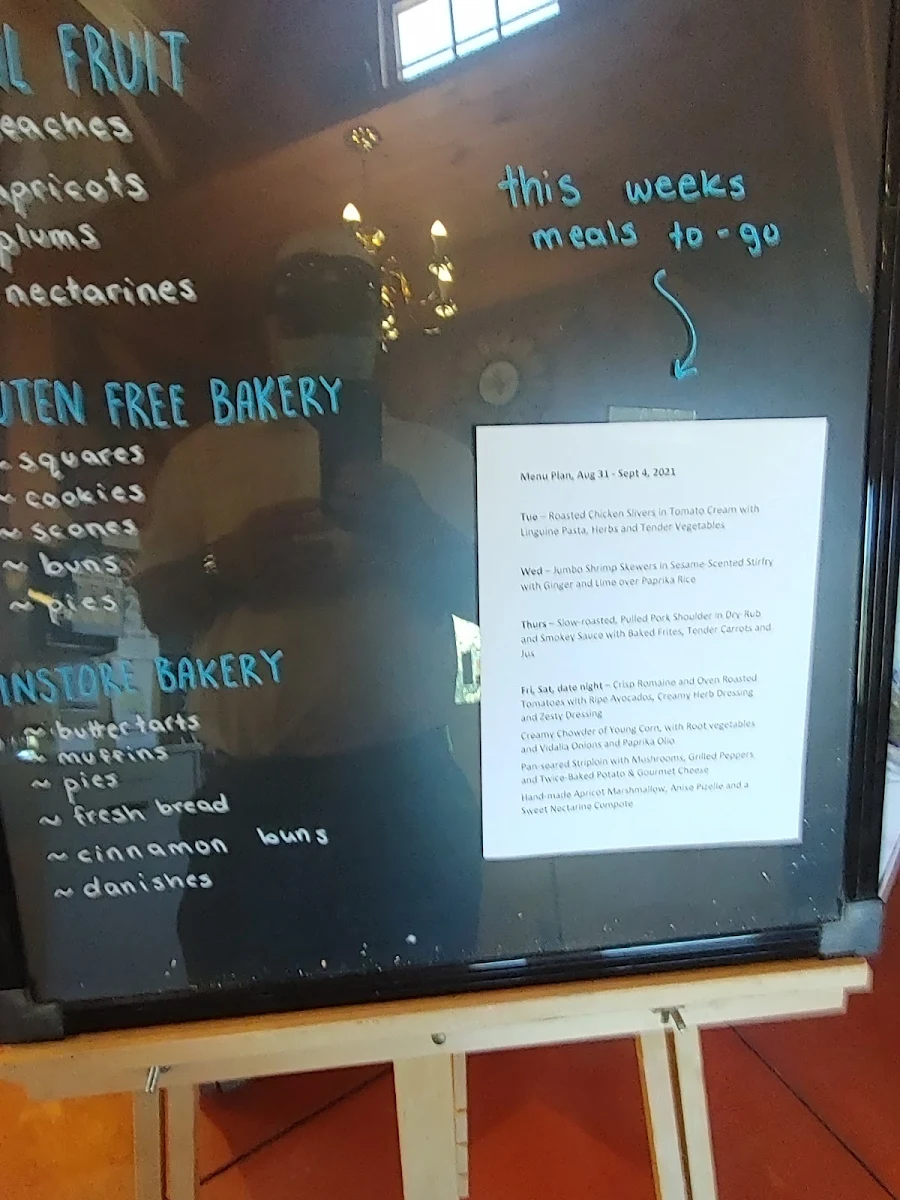 L FRUIT
eaches
apricots
plums
nectarines
UTEN FREE BAKERY
~ squares
~ cookies
~ scones
~ buns
~ pies
INSTORE BAKERY
~ buttertarts
~ muffins
~ pies
~ fresh bread
~ cinnamon buns
~ danishes
this weeks
meals to-go
Menu Plan, Aug 31 - Sept 4, 2021
Tue – Roasted Chicken Slivers in Tomato Cream with
Linguine Pasta, Herbs and Tender Vegetables
Wed – Jumbo Shrimp Skewers in Sesame-Scented Stirfry
with Ginger and Lime over Paprika Rice
Thurs – Slow-roasted, Pulled Pork Shoulder in Dry-Rub
and Smokey Sauce with Baked Frites, Tender Carrots and
Jus
Fri, Sat, date night – Crisp Romaine and Oven Roasted
Tomatoes with Ripe Avocados, Creamy Herb Dressing
and Zesty Dressing
Creamy Chowder of Young Corn, with Root vegetables
and Vidalia Onions and Paprika Olio
Pan-seared Striploin with Mushrooms, Grilled Peppers
and Twice-Baked Potato & Gourmet Cheese
Hand-made Apricot Marshmallow, Anise Pizelle and a
Sweet Nectarine Compote